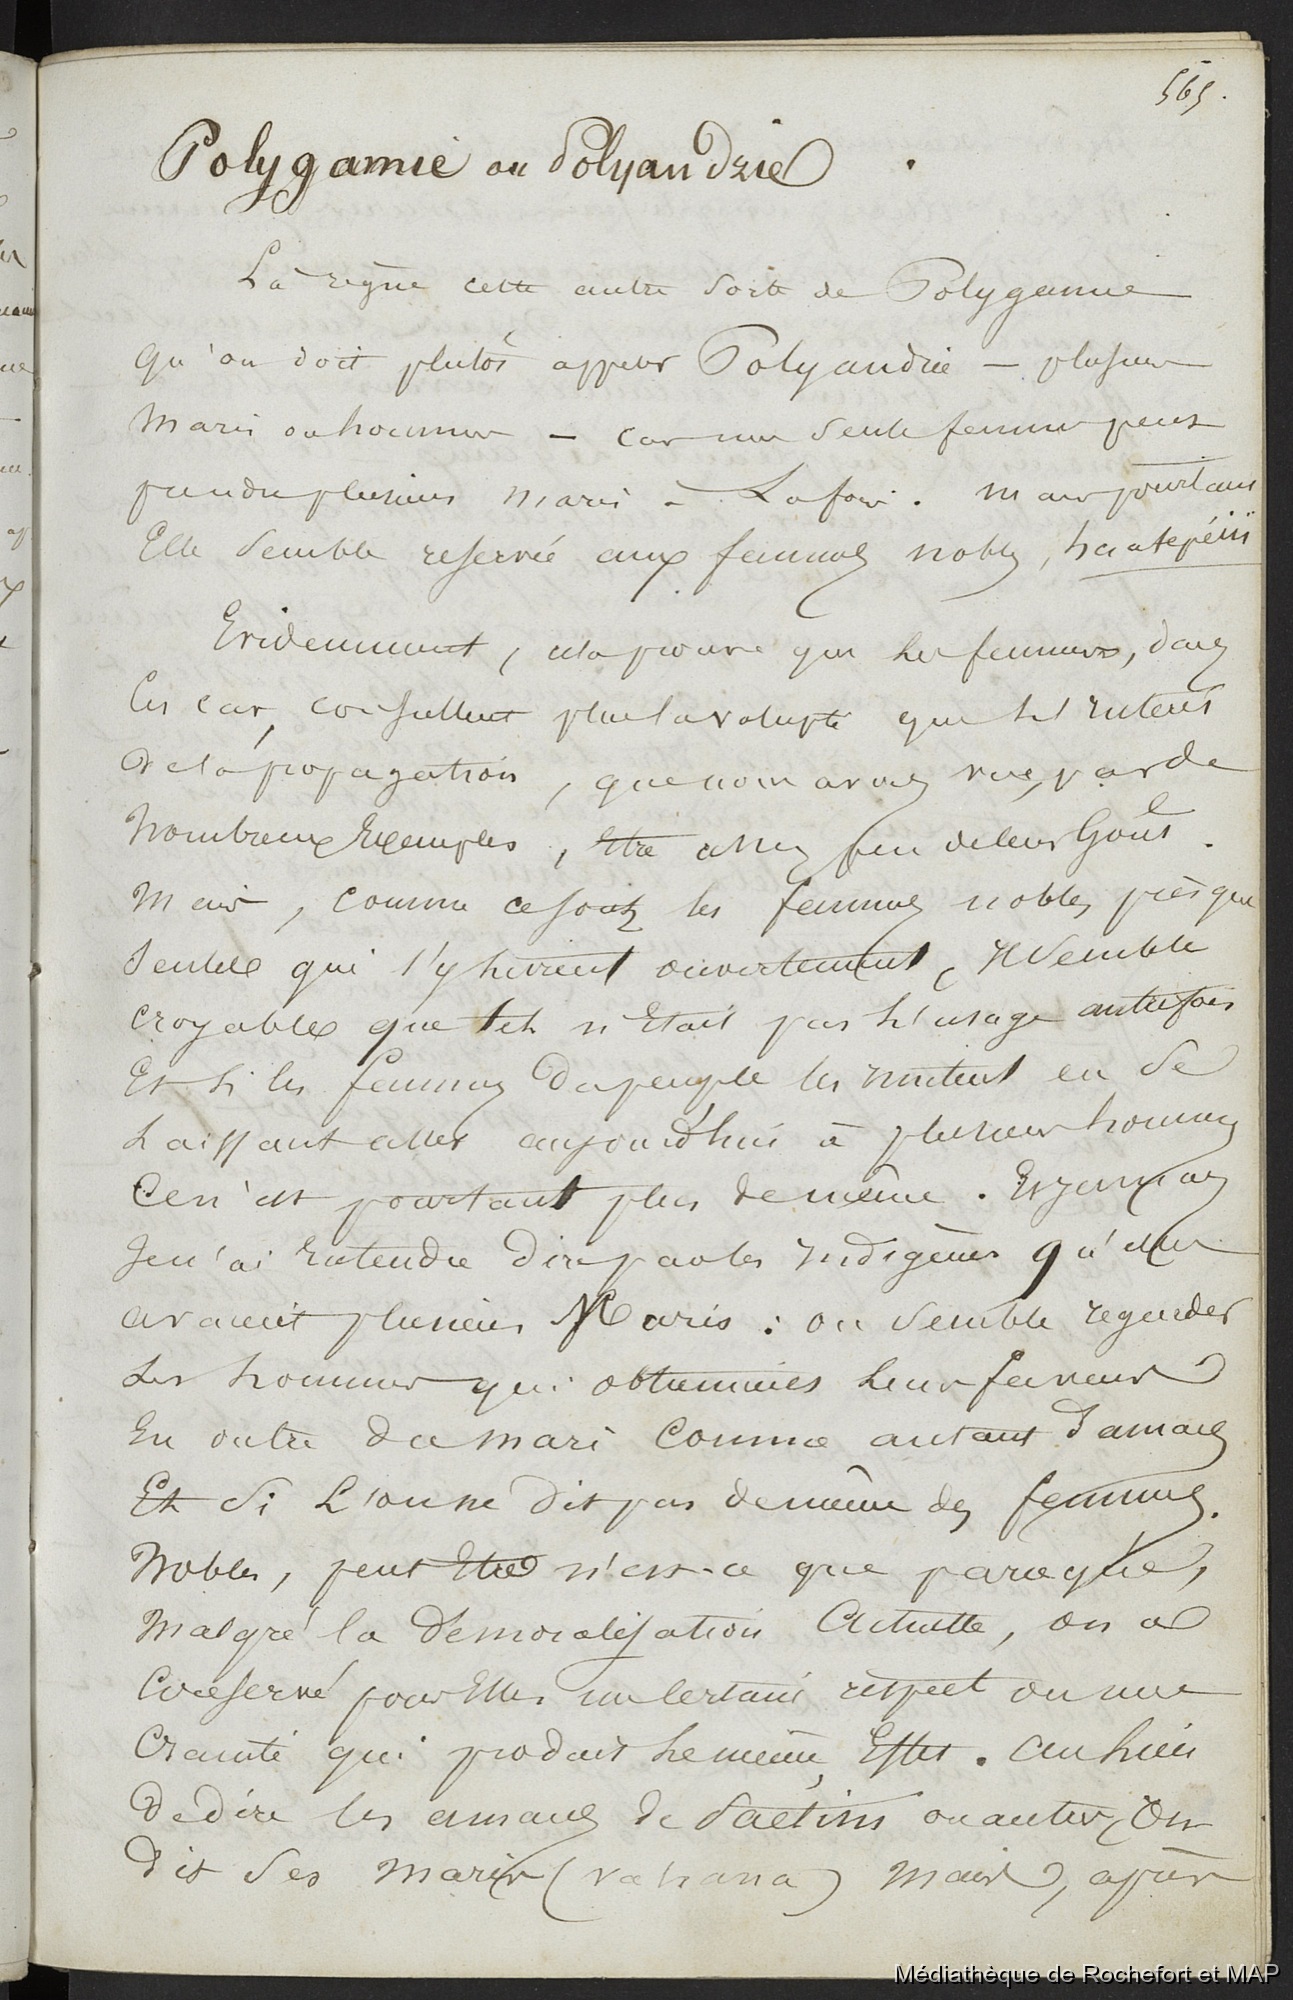 565.
Polygamie ou Polyandrie .
Là règne cette autre sorte de Polygamie
qu'on doit plutôt appeler Polyandrie — plusieurs
maris ou hommes — car une seule femme peut
prendre plusieurs maris à La fois. Mais pourtant
Elle semble reservée aux femmes nobles, haatepeiü
Evidemment, cela prouve que les femmes, dans
les cas, consultent plus la volupté que l'interêt
de la propagation, que nous avons vue, par de
nombreux Exemples, être assez peu de leur Goût.
Mais, comme ce sont les femmes nobles presque
seules qui s'y livrent ouvertement, il semble
croyable que tel n'Etait pas l'usage autrefois
Et si les femmes du peuple les imitent en se
Laissant aller aujourd'hui à plusieurs hommes
Ce n'est pourtant plus de même. Et jamais
Je n'ai Entendu dire par les indigènes qu'elles
avaient plusieurs Maris : on semble regarder
Les hommes qui obtiennent leurs faveurs
En outre du mari comme autant d'amans
Et si L'on ne dit pas de même des femmes
Nobles, peut Etre n'est-ce que parcequ'e,
Malgré la démoralisation Actuelle, on a
Conservé pour Elles un Certain respect ou une
Crainte qui produit le même Effet. Au lieu
de dire les amans de Paetini ou autres, On
dit ses maris (vahana) Mais, après
Médiathèque de Rochefort et MAP